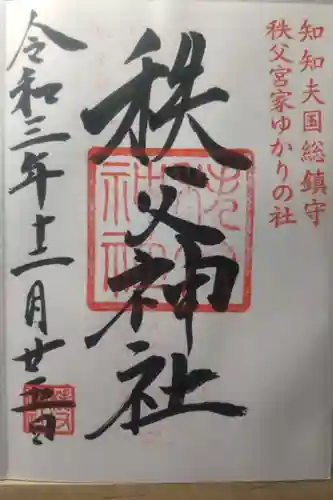 知知夫国総鎮守
秩父宮家ゆかりの社
秩父神社
令和三年十二月廿五日